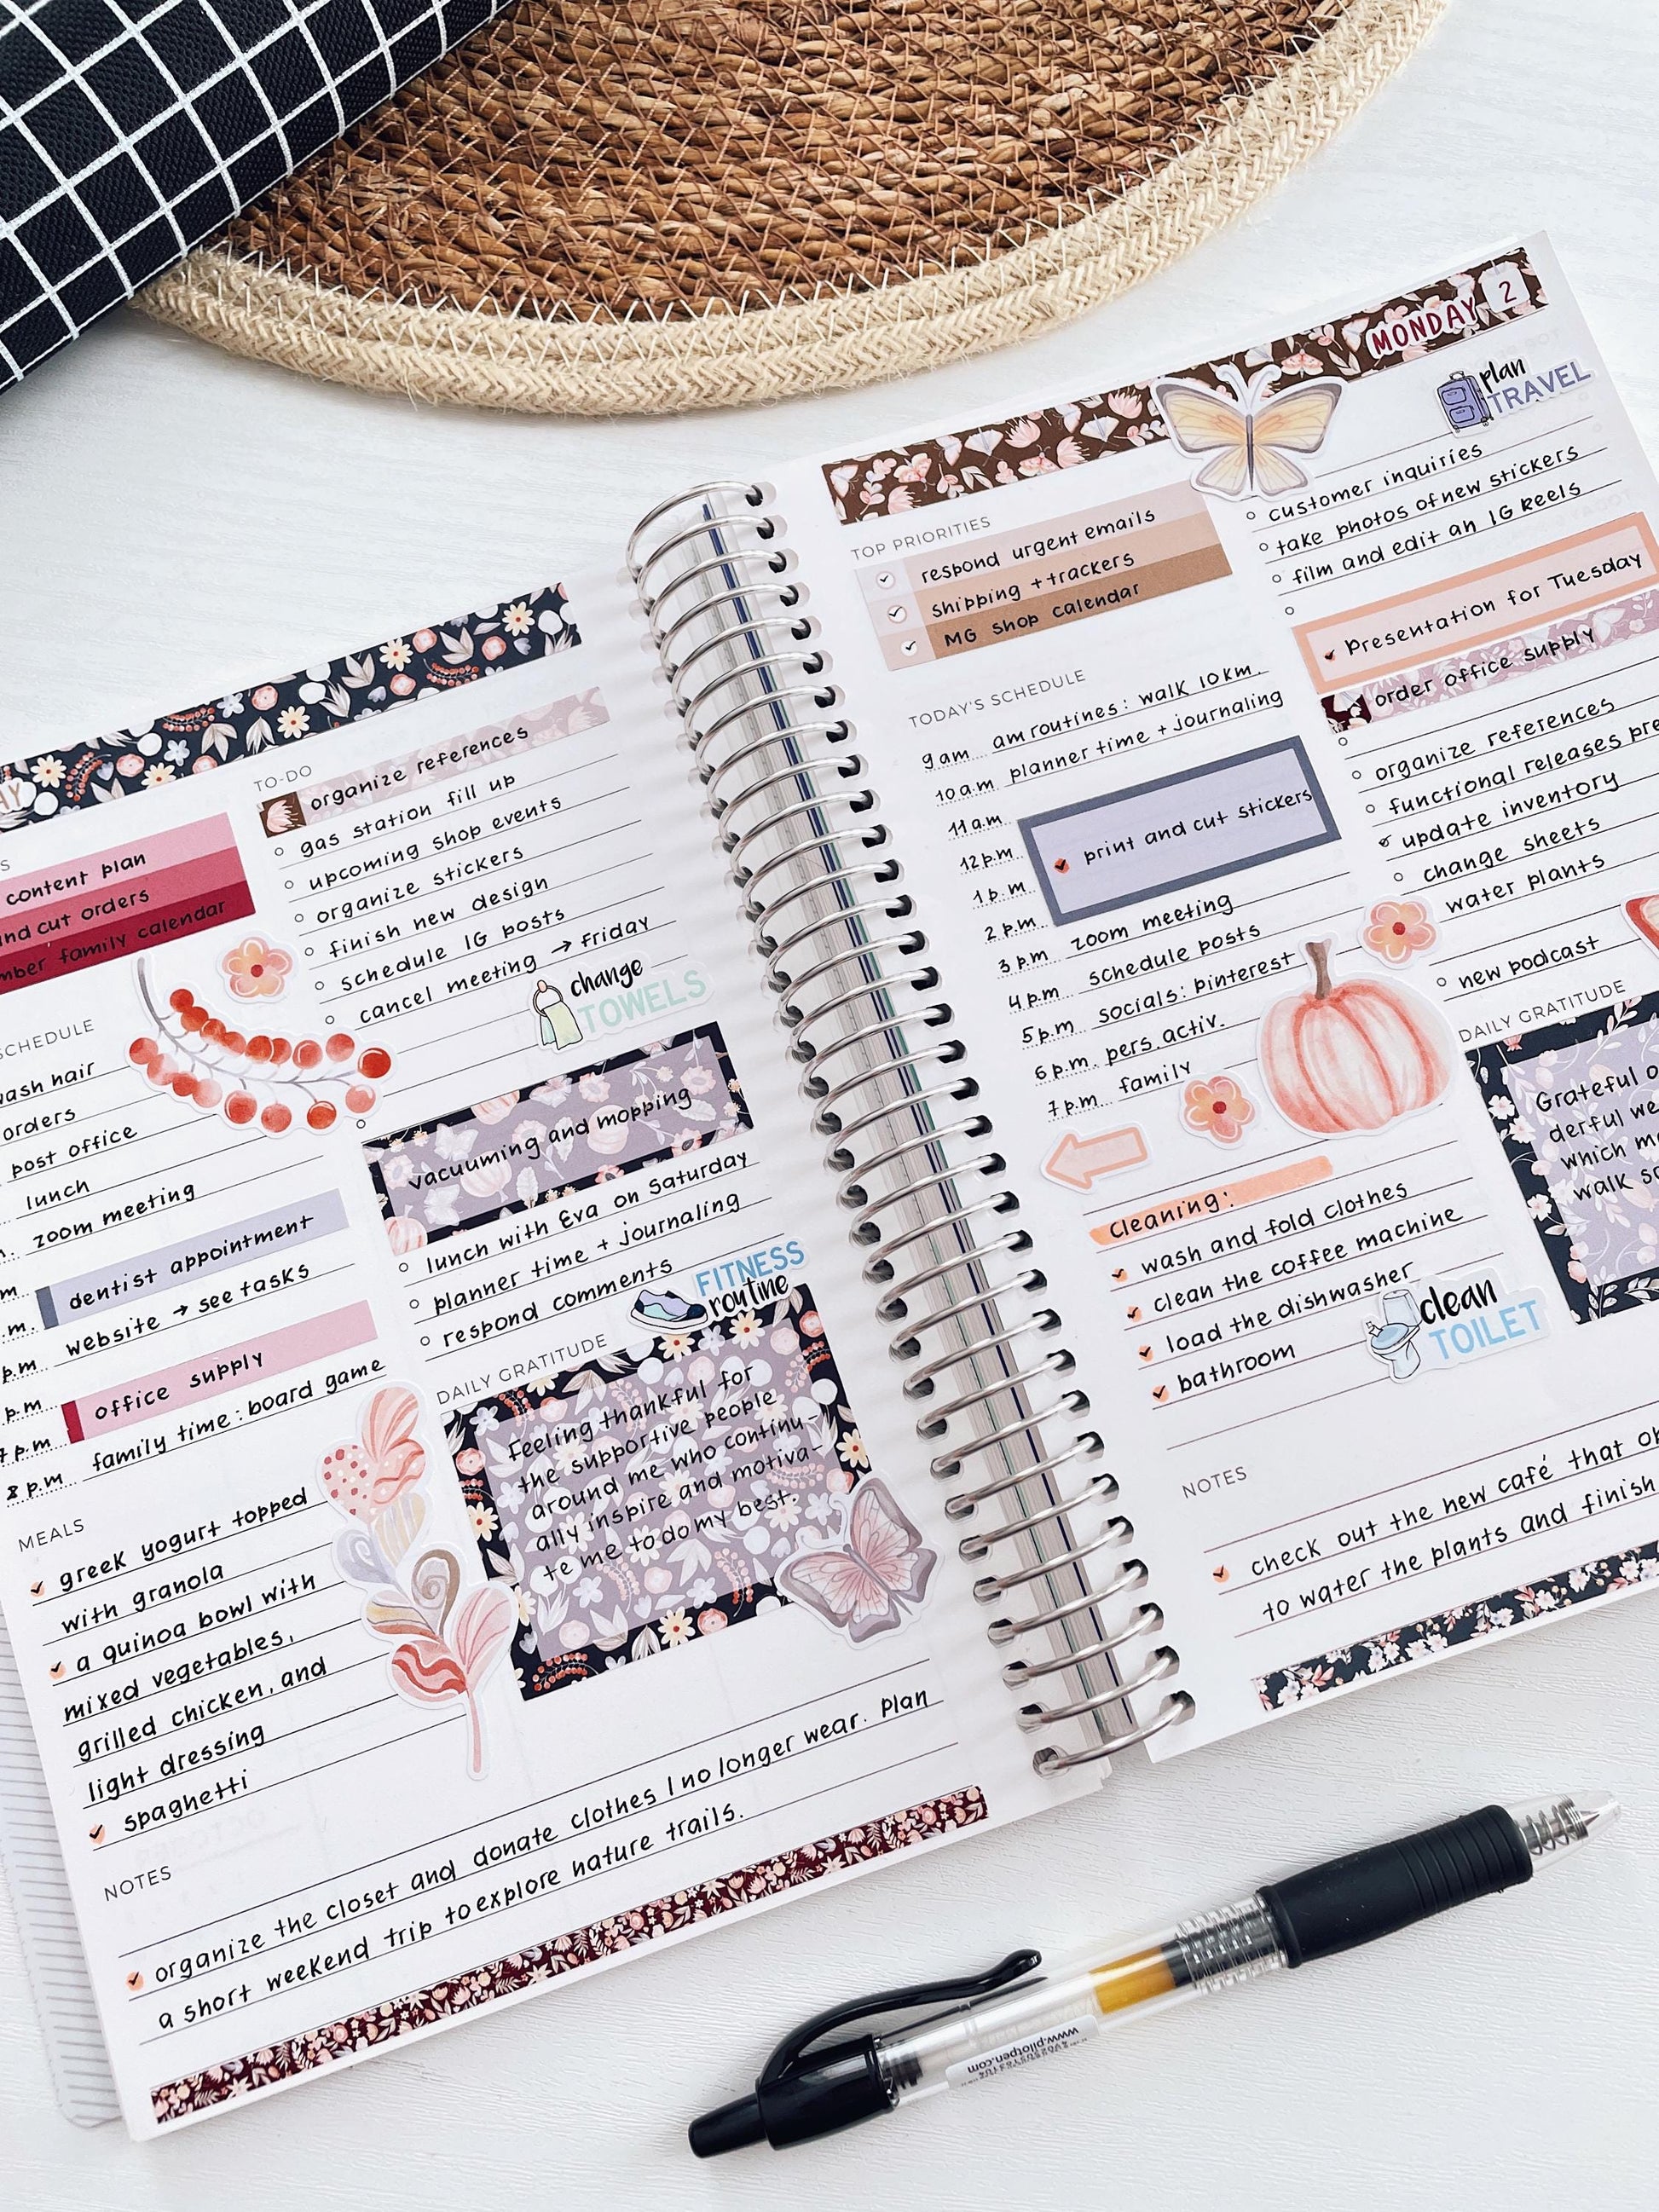 AY
TO-DO
organize references
gas station fill up
upcoming shop events
organize stickers
finish new design
schedule IG posts
cancel meeting → Friday
change
TOWELS
vacuuming and mopping
lunch with Eva on Saturday
planner time + journaling
respond comments
FITNESS
routine
content plan
cut orders
family calendar
SCHEDULE
hair
orders
post office
lunch
zoom meeting
dentist appointment
website → see tasks
p.m
office supply
p.m
family time: board game
8 p.m
MEALS
greek yogurt topped
with granola
a quinoa bowl with
mixed vegetables,
grilled chicken, and
light dressing
spaghetti
DAILY GRATITUDE
Feeling thankful for
the supportive people
around me who continu-
ally inspire and motiva-
te me to do my best.
NOTES
organize the closet and donate clothes I no longer wear. Plan
a short weekend trip to explore nature trails.
MONDAY 2
TOP PRIORITIES
respond urgent emails
shipping + trackers
MG shop calendar
TODAY'S SCHEDULE
9 am am routines: walk 10km.
10 a.m planner time + journaling
11 a.m
12 p.m print and cut stickers
1 p.m
2 p.m zoom meeting
3 p.m schedule posts
4 p.m socials: pinterest
5 p.m pers. activ.
6 p.m. family
7 p.m
Cleaning:
wash and fold clothes
clean the coffee machine
load the dishwasher
bathroom
clean
TOILET
plan
TRAVEL
customer inquiries
take photos of new stickers
film and edit an IG reels
Presentation for Tuesday
order office supply
organize references
functional releases
update inventory
change sheets
water plants
new podcast
DAILY GRATITUDE
Grateful
derful
which
walk
NOTES
check out the new café that
to water the plants and finish
www.pilotpen.com